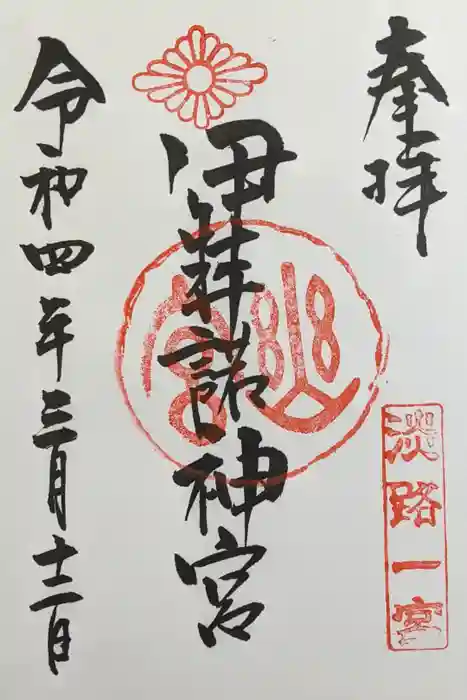 奉拝
淡路一宮
伊弉諾神宮
令和四年三月十二日